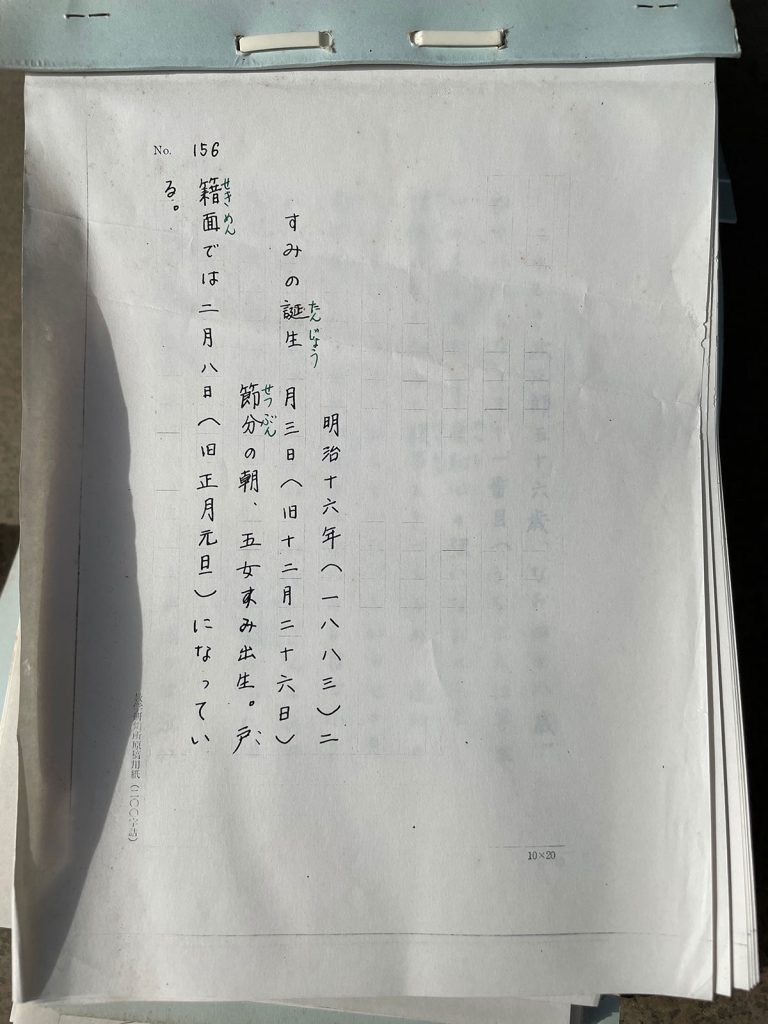 No. 156
明治十六年(一八八三)二
すみの誕生
たんじょう
月三日(旧十二月二十六日)
節分の朝、五女すみ出生。戸
せつぶん
籍面では二月八日(旧正月元旦)になってい
せきめん
る。
原稿用紙(二〇〇字詰)
10×20